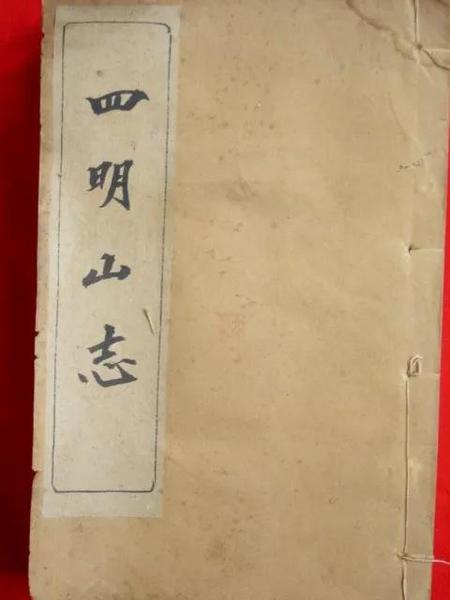 四明山志